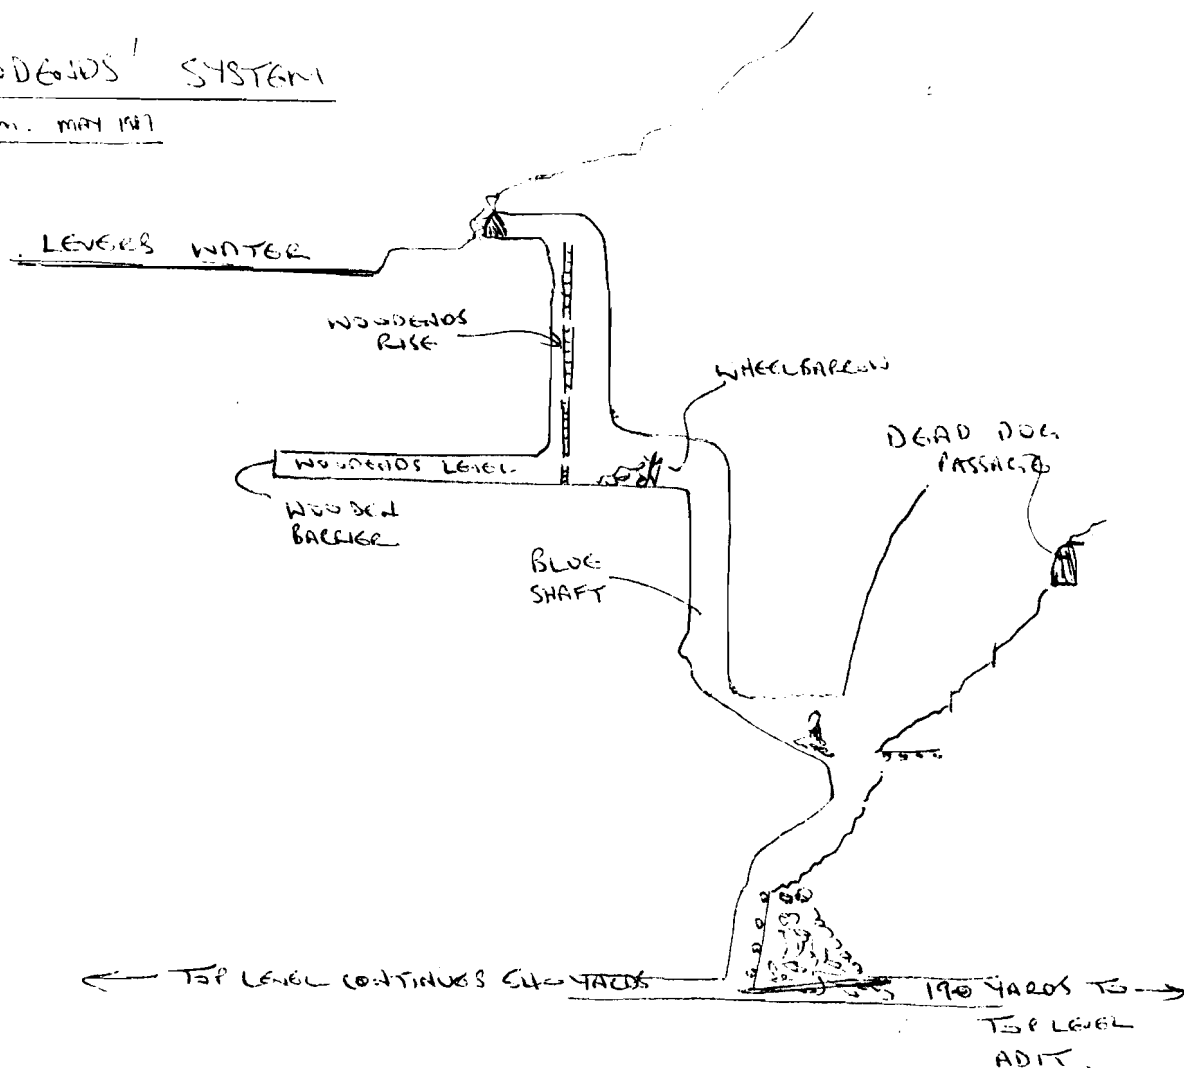 ODENDS' SYSTEM
m. MAY 1987
LEVERS WATER
WOODENDS
RISE
WHEELBARROW
DEAD DOG
PASSAGE
WOODENDS LEVEL
WOODEN
BARRIER
BLUE
SHAFT
TOP LEVEL CONTINUES 540 YARDS
190 YARDS TO
TOP LEVEL
ADIT.